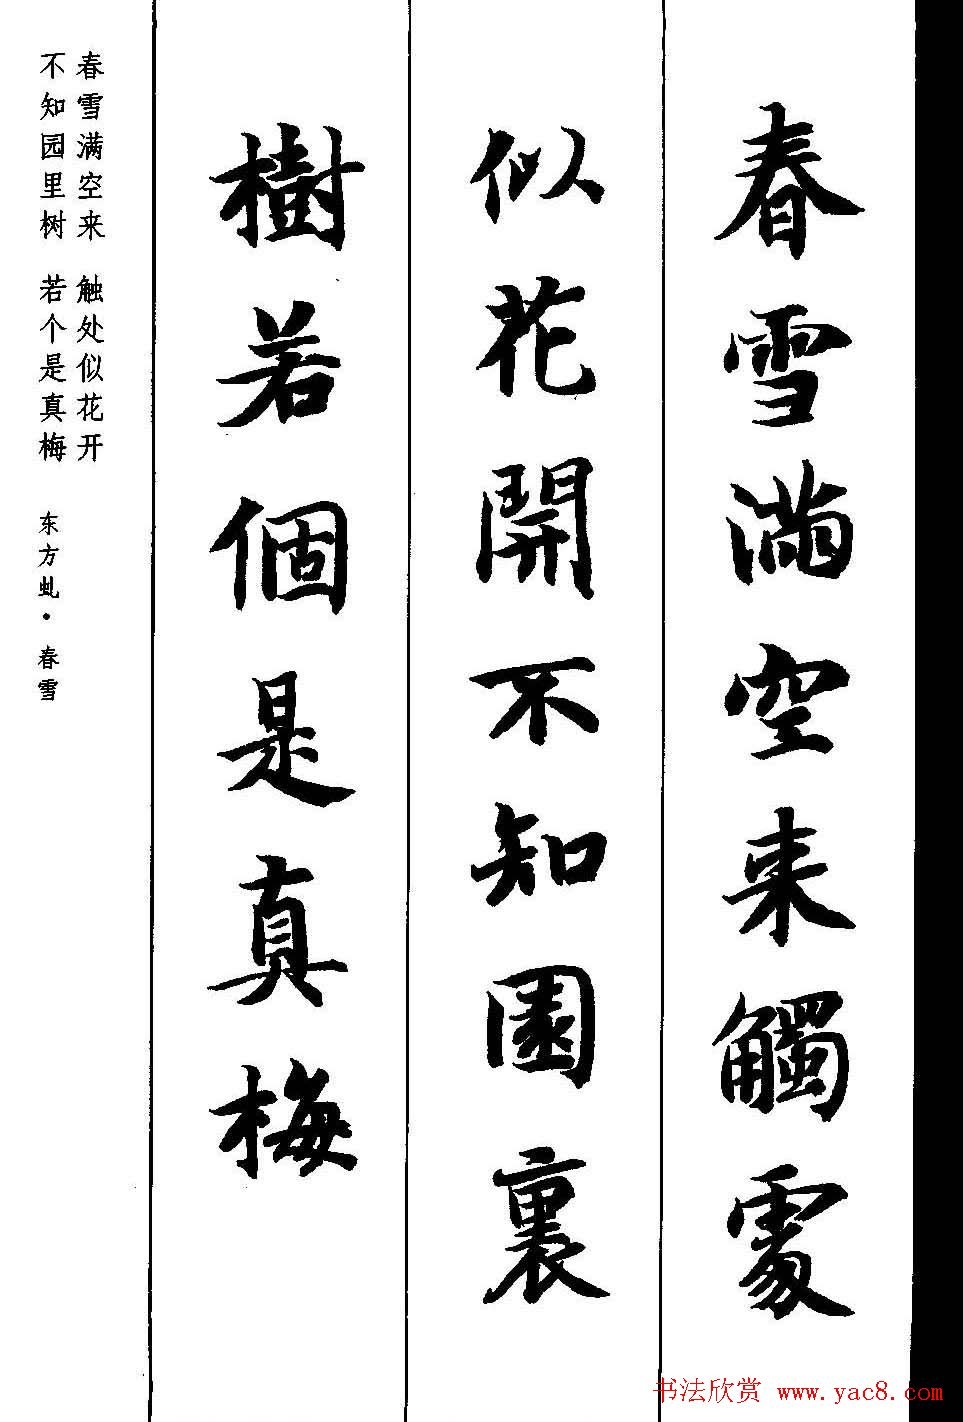 春雪滿空来觸處
似花開不知園裏
樹若個是真梅
春雪满空来 触处似花开
不知园里树 若个是真梅
东方虬·春雪
书法欣赏 www.yac8.com